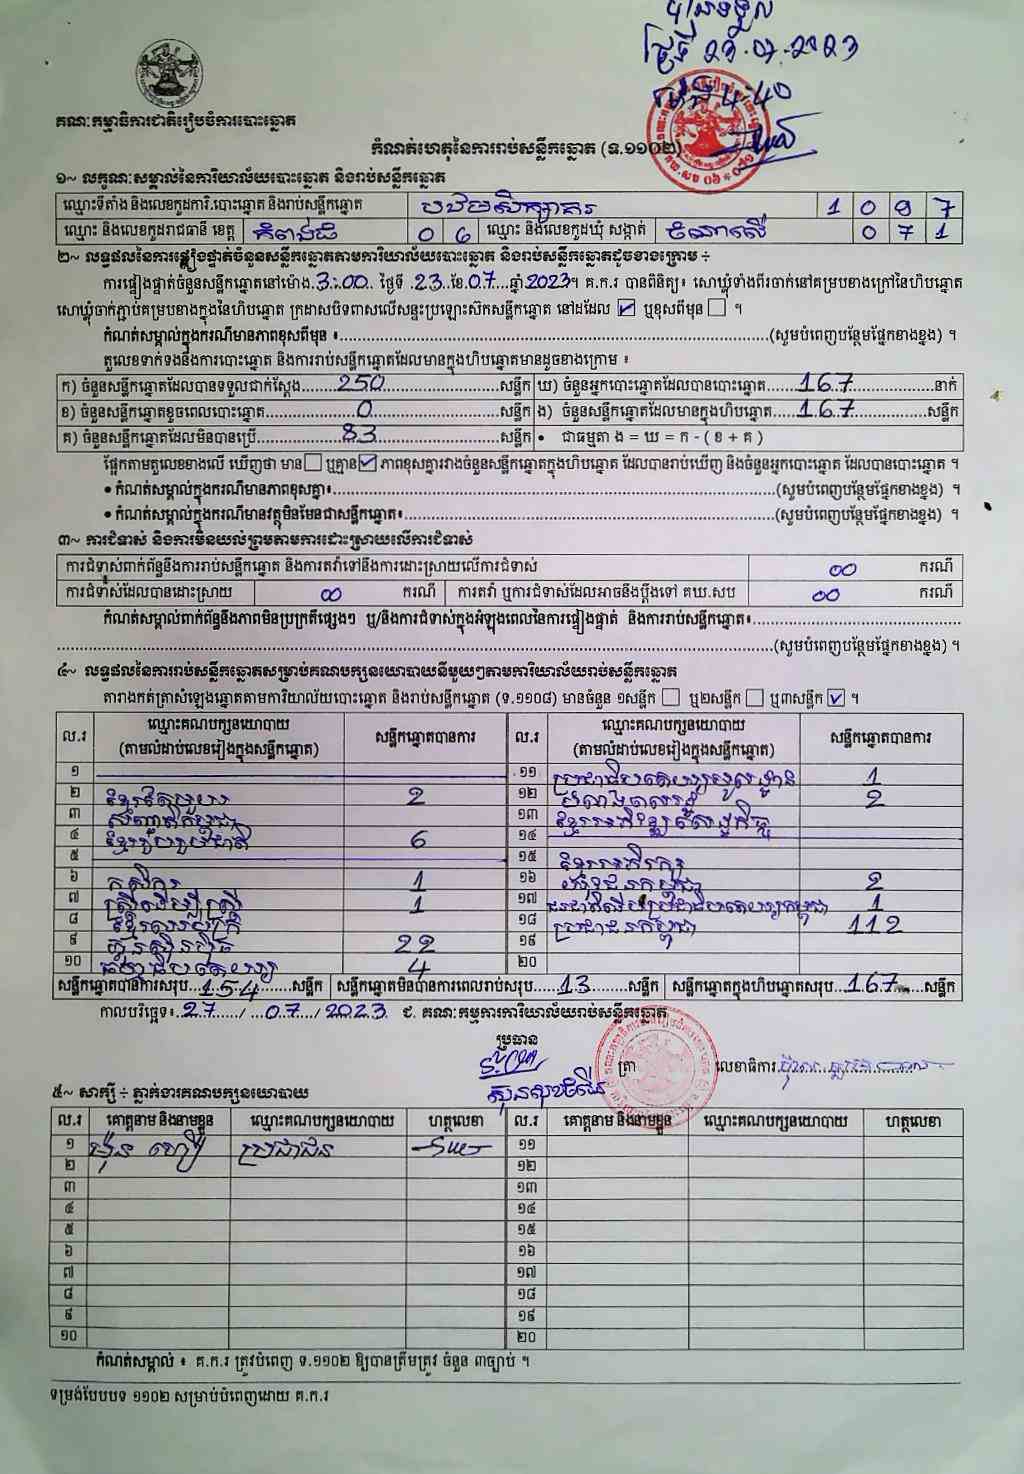 ថ្ងៃទី 23.07.2023
ម៉ោង 4:40
គណៈកម្មាធិការជាតិរៀបចំការបោះឆ្នោត
កំណត់ហេតុនៃការរាប់សន្លឹកឆ្នោត (ទ.១១០២)
១~ លក្ខណៈសម្គាល់នៃការិយាល័យបោះឆ្នោត និងរាប់សន្លឹកឆ្នោត
ឈ្មោះទីតាំង និងលេខកូដការិ.បោះឆ្នោត និងរាប់សន្លឹកឆ្នោត បឋមសិក្សាគរ 1 0 9 7
ឈ្មោះ និងលេខកូដរាជធានី ខេត្ត កំពង់ធំ 0 6 ឈ្មោះ និងលេខកូដឃុំ សង្កាត់ ចំណាលើ 0 7 1
២~ លទ្ធផលនៃការផ្ទៀងផ្ទាត់ចំនួនសន្លឹកឆ្នោតតាមការិយាល័យបោះឆ្នោត និងរាប់សន្លឹកឆ្នោតដូចខាងក្រោម ÷
ការផ្ទៀងផ្ទាត់ចំនួនសន្លឹកឆ្នោតនៅម៉ោង 3:00 ថ្ងៃទី 23 ខែ 07 ឆ្នាំ 2023។ គ.ក.រ បានពិនិត្យ៖ សោឃ្លុំទាំងពីរចាក់នៅគម្របខាងក្រៅនៃហិបឆ្នោត
សោឃ្លុំចាក់ភ្ជាប់គម្របខាងក្នុងនៃហិបឆ្នោត ក្រដាសបិទពាសលើសន្ទះប្រឡោះស៊កសន្លឹកឆ្នោត នៅដដែល ☑ ឬខុសពីមុន ☐ ។
កំណត់សម្គាល់ក្នុងករណីមានភាពខុសពីមុន ៖ (សូមបំពេញបន្ថែមផ្នែកខាងខ្នង) ។
តួលេខទាក់ទងនឹងការបោះឆ្នោត និងការរាប់សន្លឹកឆ្នោតដែលមានក្នុងហិបឆ្នោតមានដូចខាងក្រោម ៖
ក) ចំនួនសន្លឹកឆ្នោតដែលបានទទួលជាក់ស្តែង 250 សន្លឹក ឃ) ចំនួនអ្នកបោះឆ្នោតដែលបានបោះឆ្នោត 167 នាក់
ខ) ចំនួនសន្លឹកឆ្នោតខូចពេលបោះឆ្នោត 0 សន្លឹក ង) ចំនួនសន្លឹកឆ្នោតដែលមានក្នុងហិបឆ្នោត 167 សន្លឹក
គ) ចំនួនសន្លឹកឆ្នោតដែលមិនបានប្រើ 83 សន្លឹក • ជាធម្មតា ង = ឃ = ក - ( ខ + គ )
ផ្អែកតាមតួលេខខាងលើ ឃើញថា មាន ☐ ឬគ្មាន ☑ ភាពខុសគ្នារវាងចំនួនសន្លឹកឆ្នោតក្នុងហិបឆ្នោត ដែលបានរាប់ឃើញ និងចំនួនអ្នកបោះឆ្នោត ដែលបានបោះឆ្នោត ។
• កំណត់សម្គាល់ក្នុងករណីមានភាពខុសគ្នា៖ (សូមបំពេញបន្ថែមផ្នែកខាងខ្នង) ។
• កំណត់សម្គាល់ក្នុងករណីមានវត្ថុមិនមែនជាសន្លឹកឆ្នោត៖ (សូមបំពេញបន្ថែមផ្នែកខាងខ្នង) ។
៣~ ការជំទាស់ និងការមិនយល់ព្រមតាមការដោះស្រាយលើការជំទាស់
ការជំទាស់ពាក់ព័ន្ធនឹងការរាប់សន្លឹកឆ្នោត និងការតវ៉ាទៅនឹងការដោះស្រាយលើការជំទាស់ 00 ករណី
ការជំទាស់ដែលបានដោះស្រាយ 00 ករណី ការតវ៉ា ឬការជំទាស់ដែលអាចនឹងប្តឹងទៅ គឃ.សប 00 ករណី
កំណត់សម្គាល់ពាក់ព័ន្ធនឹងភាពមិនប្រក្រតីផ្សេងៗ ឬ/និងការជំទាស់ក្នុងអំឡុងពេលនៃការផ្ទៀងផ្ទាត់ និងការរាប់សន្លឹកឆ្នោត៖
(សូមបំពេញបន្ថែមផ្នែកខាងខ្នង) ។
៤~ លទ្ធផលនៃការរាប់សន្លឹកឆ្នោតសម្រាប់គណបក្សនយោបាយនីមួយៗតាមការិយាល័យរាប់សន្លឹកឆ្នោត
តារាងកត់ត្រាសំឡេងឆ្នោតតាមការិយាល័យបោះឆ្នោត និងរាប់សន្លឹកឆ្នោត (ទ.១១០៨) មានចំនួន ១សន្លឹក ☐ ឬ២សន្លឹក ☐ ឬ៣សន្លឹក ☑ ។
ល.រ ឈ្មោះគណបក្សនយោបាយ (តាមលំដាប់លេខរៀងក្នុងសន្លឹកឆ្នោត) សន្លឹកឆ្នោតបានការ ល.រ ឈ្មោះគណបក្សនយោបាយ (តាមលំដាប់លេខរៀងក្នុងសន្លឹកឆ្នោត) សន្លឹកឆ្នោតបានការ
១ ១១ ប្រជាធិបតេយ្យមូលដ្ឋាន 1
២ ខ្មែរតែមួយ 2 ១២ បំណាងពលរដ្ឋ 2
៣ សញ្ជាតិកម្ពុជា ១៣ ខ្មែរអភិវឌ្ឍន៍សេដ្ឋកិច្ច
៤ ខ្មែររួបរួមជាតិ 6 ១៤
៥ ១៥ ខ្មែរអភិរក្ស
៦ កសិករ 1 ១៦ យុវជនកម្ពុជា 2
៧ ស្ត្រីដើម្បីស្ត្រី 1 ១៧ ជនជាតិដើមប្រជាធិបតេយ្យកម្ពុជា 1
៨ ខ្មែរឈប់ក្រ ១៨ ប្រជាជនកម្ពុជា 112
៩ ហ៊្វុនស៊ិនប៉ិច 22 ១៩
១០ ធម្មាធិបតេយ្យ 4 ២០
សន្លឹកឆ្នោតបានការសរុប 154 សន្លឹក សន្លឹកឆ្នោតមិនបានការពេលរាប់សរុប 13 សន្លឹក សន្លឹកឆ្នោតក្នុងហិបឆ្នោតសរុប 167 សន្លឹក
កាលបរិច្ឆេទ៖ 27 / 07 / 2023 ជ. គណៈកម្មការការិយាល័យរាប់សន្លឹកឆ្នោត
ប្រធាន
ត្រា លេខាធិការ
៥~ សាក្សី ÷ ភ្នាក់ងារគណបក្សនយោបាយ
ល.រ គោត្តនាម និងនាមខ្លួន ឈ្មោះគណបក្សនយោបាយ ហត្ថលេខា ល.រ គោត្តនាម និងនាមខ្លួន ឈ្មោះគណបក្សនយោបាយ ហត្ថលេខា
១ ម៉ុន ហឿ ប្រជាជន ១១
២ ១២
៣ ១៣
៤ ១៤
៥ ១៥
៦ ១៦
៧ ១៧
៨ ១៨
៩ ១៩
១០ ២០
កំណត់សម្គាល់ ៖ គ.ក.រ ត្រូវបំពេញ ទ.១១០២ ឱ្យបានត្រឹមត្រូវ ចំនួន ៣ច្បាប់ ។
ទម្រង់បែបបទ ១១០២ សម្រាប់បំពេញដោយ គ.ក.រ